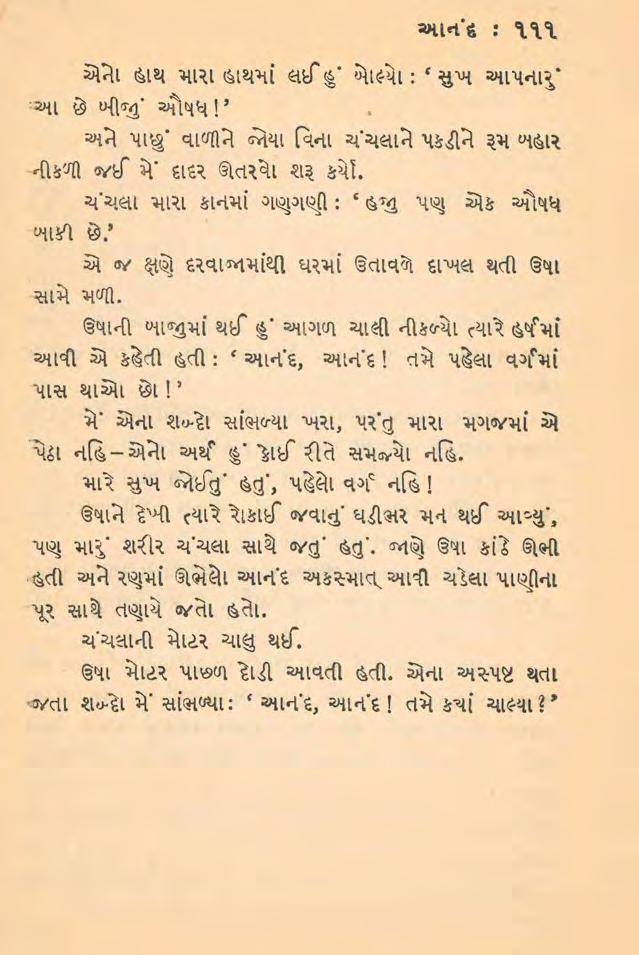 આનંદ : ૧૧૧
એનો હાથ મારા હાથમાં લઈ હું બોલ્યો : ‘ સુખ આપનારું
આ છે બીજું ઔષધ ! ’
અને પાછું વાળીને જોયા વિના ચંચલાને પકડીને રૂમ બહાર
નીકળી જઈ મેં દાદર ઊતરવો શરૂ કર્યો.
ચંચલા મારા કાનમાં ગણગણી : ‘ હજુ પણ એક ઔષધ
બાકી છે.’
એ જ ક્ષણે દરવાજામાંથી ઘરમાં ઉતાવળે દાખલ થતી ઉષા
સામે મળી.
ઉષાની બાજુમાં થઈ હું આગળ ચાલી નીકળ્યો ત્યારે હર્ષમાં
આવી એ કહેતી હતી : ‘ આનંદ, આનંદ ! તમે પહેલા વર્ગમાં
પાસ થાઓ છો ! ’
મેં એના શબ્દો સાંભળ્યા ખરા, પરંતુ મારા મગજમાં એ
પેઠા નહિ – એનો અર્થ હું કોઈ રીતે સમજ્યો નહિ.
મારે સુખ જોઈતું હતું, પહેલો વર્ગ નહિ !
ઉષાને દેખી ત્યારે રોકાઈ જવાનું ઘડીભર મન થઈ આવ્યું,
પણ મારું શરીર ચંચલા સાથે જતું હતું. જાણે ઉષા કાંઠે ઊભી
હતી અને રણમાં ઊભેલો આનંદ અકસ્માત્ આવી ચડેલા પાણીના
પૂર સાથે તણાયે જતો હતો.
ચંચલાની મોટર ચાલુ થઈ.
ઉષા મોટર પાછળ દોડી આવતી હતી. એના અસ્પષ્ટ થતા
જતા શબ્દો મેં સાંભળ્યા : ‘ આનંદ, આનંદ ! તમે કયાં ચાલ્યા ? ’